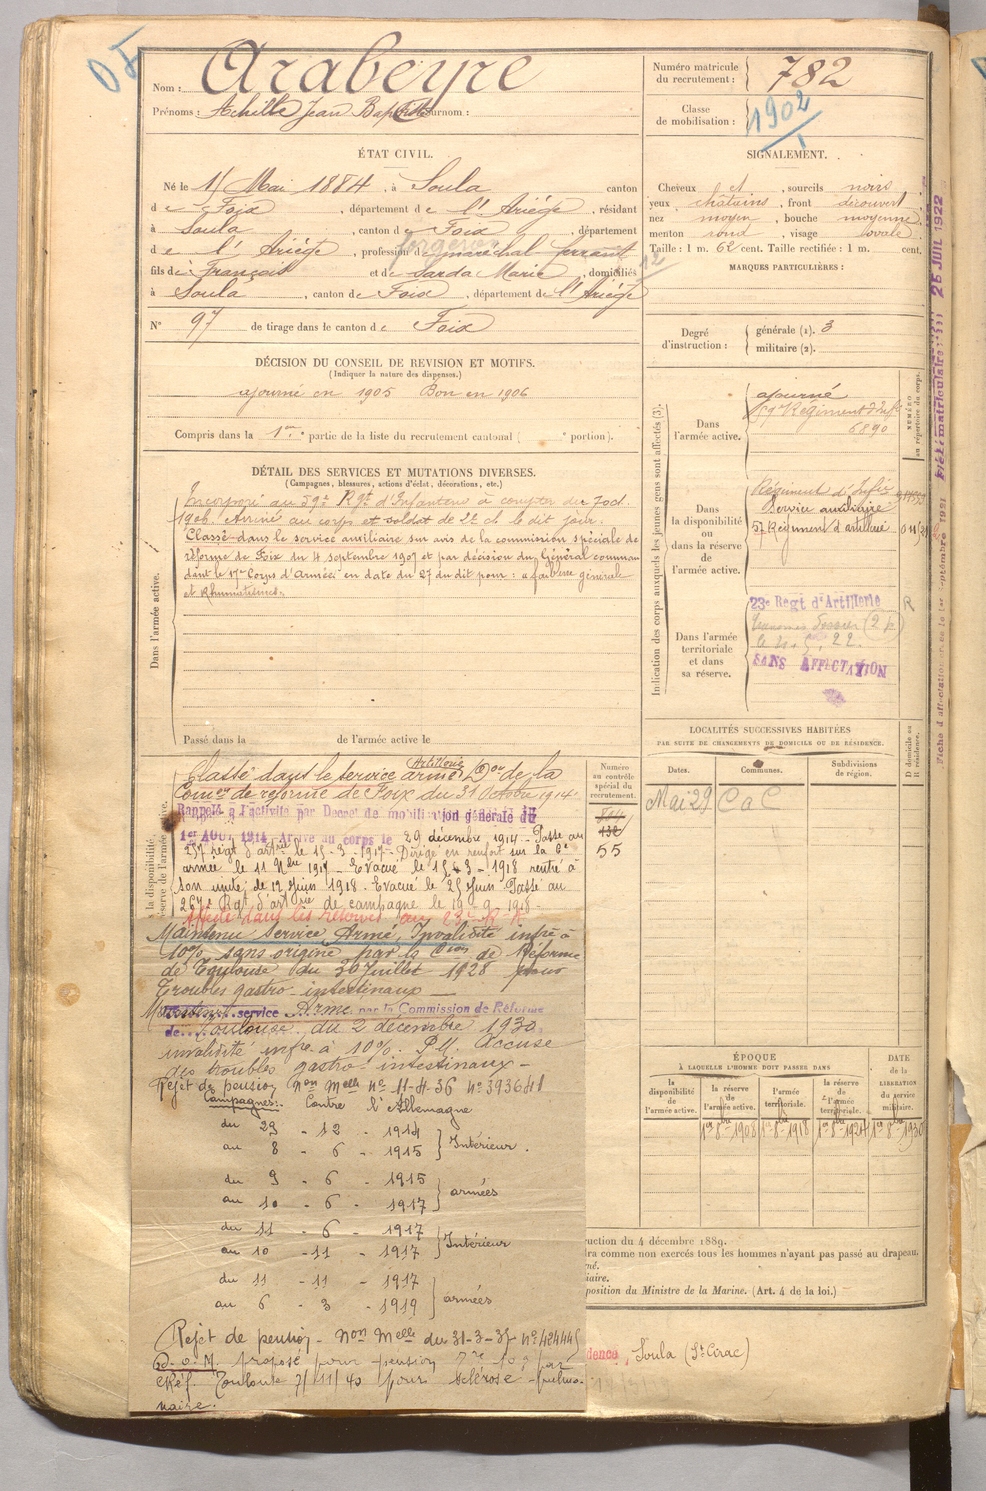 Nom : Arabeyre
Prénoms : Achille Jean Baptiste Surnom :
ÉTAT CIVIL.
Né le 1 Mai 1884, à Soula canton
de Foix, département de l'Ariège, résidant
à Soula, canton de Foix, département
de l'Ariège, profession de maréchal ferrant
fils de François et de Sarda Marie, domiciliés
à Soula, canton de Foix, département de l'Ariège
N° 97 de tirage dans le canton de Foix
DÉCISION DU CONSEIL DE REVISION ET MOTIFS.
(Indiquer la nature des dispenses.)
ajourné en 1905 Bon en 1906
Compris dans la 1re partie de la liste du recrutement cantonal ( ° portion).
DÉTAIL DES SERVICES ET MUTATIONS DIVERSES.
(Campagnes, blessures, actions d'éclat, décorations, etc.)
Dans l'armée active.
Incorporé au 59e Rgt d'Infanterie à compter du 7 oct.
1906. Arrivé au corps et soldat de 2e cl. le dit jour.
Classé dans le service auxiliaire sur avis de la commission spéciale de
réforme de Foix du 4 septembre 1907 et par décision du Général comman
dant le 17e Corps d'Armée en date du 27 du dit pour : faiblesse générale
et Rhumatismes.
Passé dans la de l'armée active le
la disponibilité
réserve de l'armée active.
Classé dans le service armé Artillerie Don de la
Comon de réforme de Foix du 31 Octobre 1914.
Rappelé à l'activité par Décret de mobilisation générale du
1er AOU 1914 Arrivé au corps le 29 décembre 1914. Passé au
257 régt d'artrie le 15-3-1917. Dirigé en renfort sur la 6e
armée le 11 Nbre 1917. Evacué le 15-3-1918 rentré à
son unité, de 12 Juin 1918. Evacué le 25 Juin Passé au
Rgt d'artrie de campagne le 19-9-1918.
Affecté dans les réserves au 23e R.A.
Maintenu Service Armé, Invalidité infre à
10% sans origine par la Con de Réforme
de Toulouse du 30 Juillet 1928 pour
Troubles gastro-intestinaux
Maintenu service Armé par la Commission de Réforme
de Toulouse du 2 décembre 1930,
invalidité infre à 10%. P.M. Accuse
des troubles gastro-intestinaux -
Rejet de pension Non Melle n° 11-4-36 n° 393641
Campagnes: Contre l'Allemagne
du 29 - 12 - 1914
au 8 - 6 - 1915 } Intérieur.
du 9 - 6 - 1915
au 10 - 6 - 1917 } armées
du 11 - 6 - 1917
au 10 - 11 - 1917 } Intérieur
du 11 - 11 - 1917
au 6 - 3 - 1919 } armées
Rejet de pension - Non Melle du 31-3-37 n° 424445
Proposé pour pension par
Réf. Toulouse 7/11/40 pour sclérose pulmo-
naire.
Numéro matricule du recrutement : 782
Classe de mobilisation : 1902
SIGNALEMENT.
Cheveux et, sourcils noirs
yeux châtains, front découvert
nez moyen, bouche moyenne
menton rond, visage ovale
Taille : 1 m. 62 cent. Taille rectifiée : 1 m. cent.
MARQUES PARTICULIÈRES :
Degré d'instruction : générale (1). 3
militaire (2).
Indication des corps auxquels les jeunes gens sont affectés (3).
NUMÉRO au répertoire du corps.
Dans l'armée active.
ajourné
59e Régiment d'Infie
6890
Dans la disponibilité ou dans la réserve de l'armée active.
Régiment d'Infie
Service auxiliaire
57 Régiment d'artillerie
Dans l'armée territoriale et dans sa réserve.
23e Regt d'Artillerie
R
SANS AFFECTATION
LOCALITÉS SUCCESSIVES HABITÉES
PAR SUITE DE CHANGEMENTS DE DOMICILE OU DE RÉSIDENCE.
D domicile ou R résidence.
Numéro au contrôle spécial du recrutement.
55
Dates. Communes. Subdivisions de région.
Mai 29 C a C
ÉPOQUE
À LAQUELLE L'HOMME DOIT PASSER DANS
DATE de la LIBÉRATION du service militaire.
la disponibilité de l'armée active. la réserve de l'armée active. l'armée territoriale. la réserve de l'armée territoriale.
1er 8bre 1908 1er 8bre 1918 1er 8bre 1924 1er 8bre 1930
ruction du 4 décembre 1889.
dra comme non exercés tous les hommes n'ayant pas passé au drapeau.
mé.
iaire.
position du Ministre de la Marine. (Art. 4 de la loi.)
dence Soula (St Cirac)
25 JUIL 1922